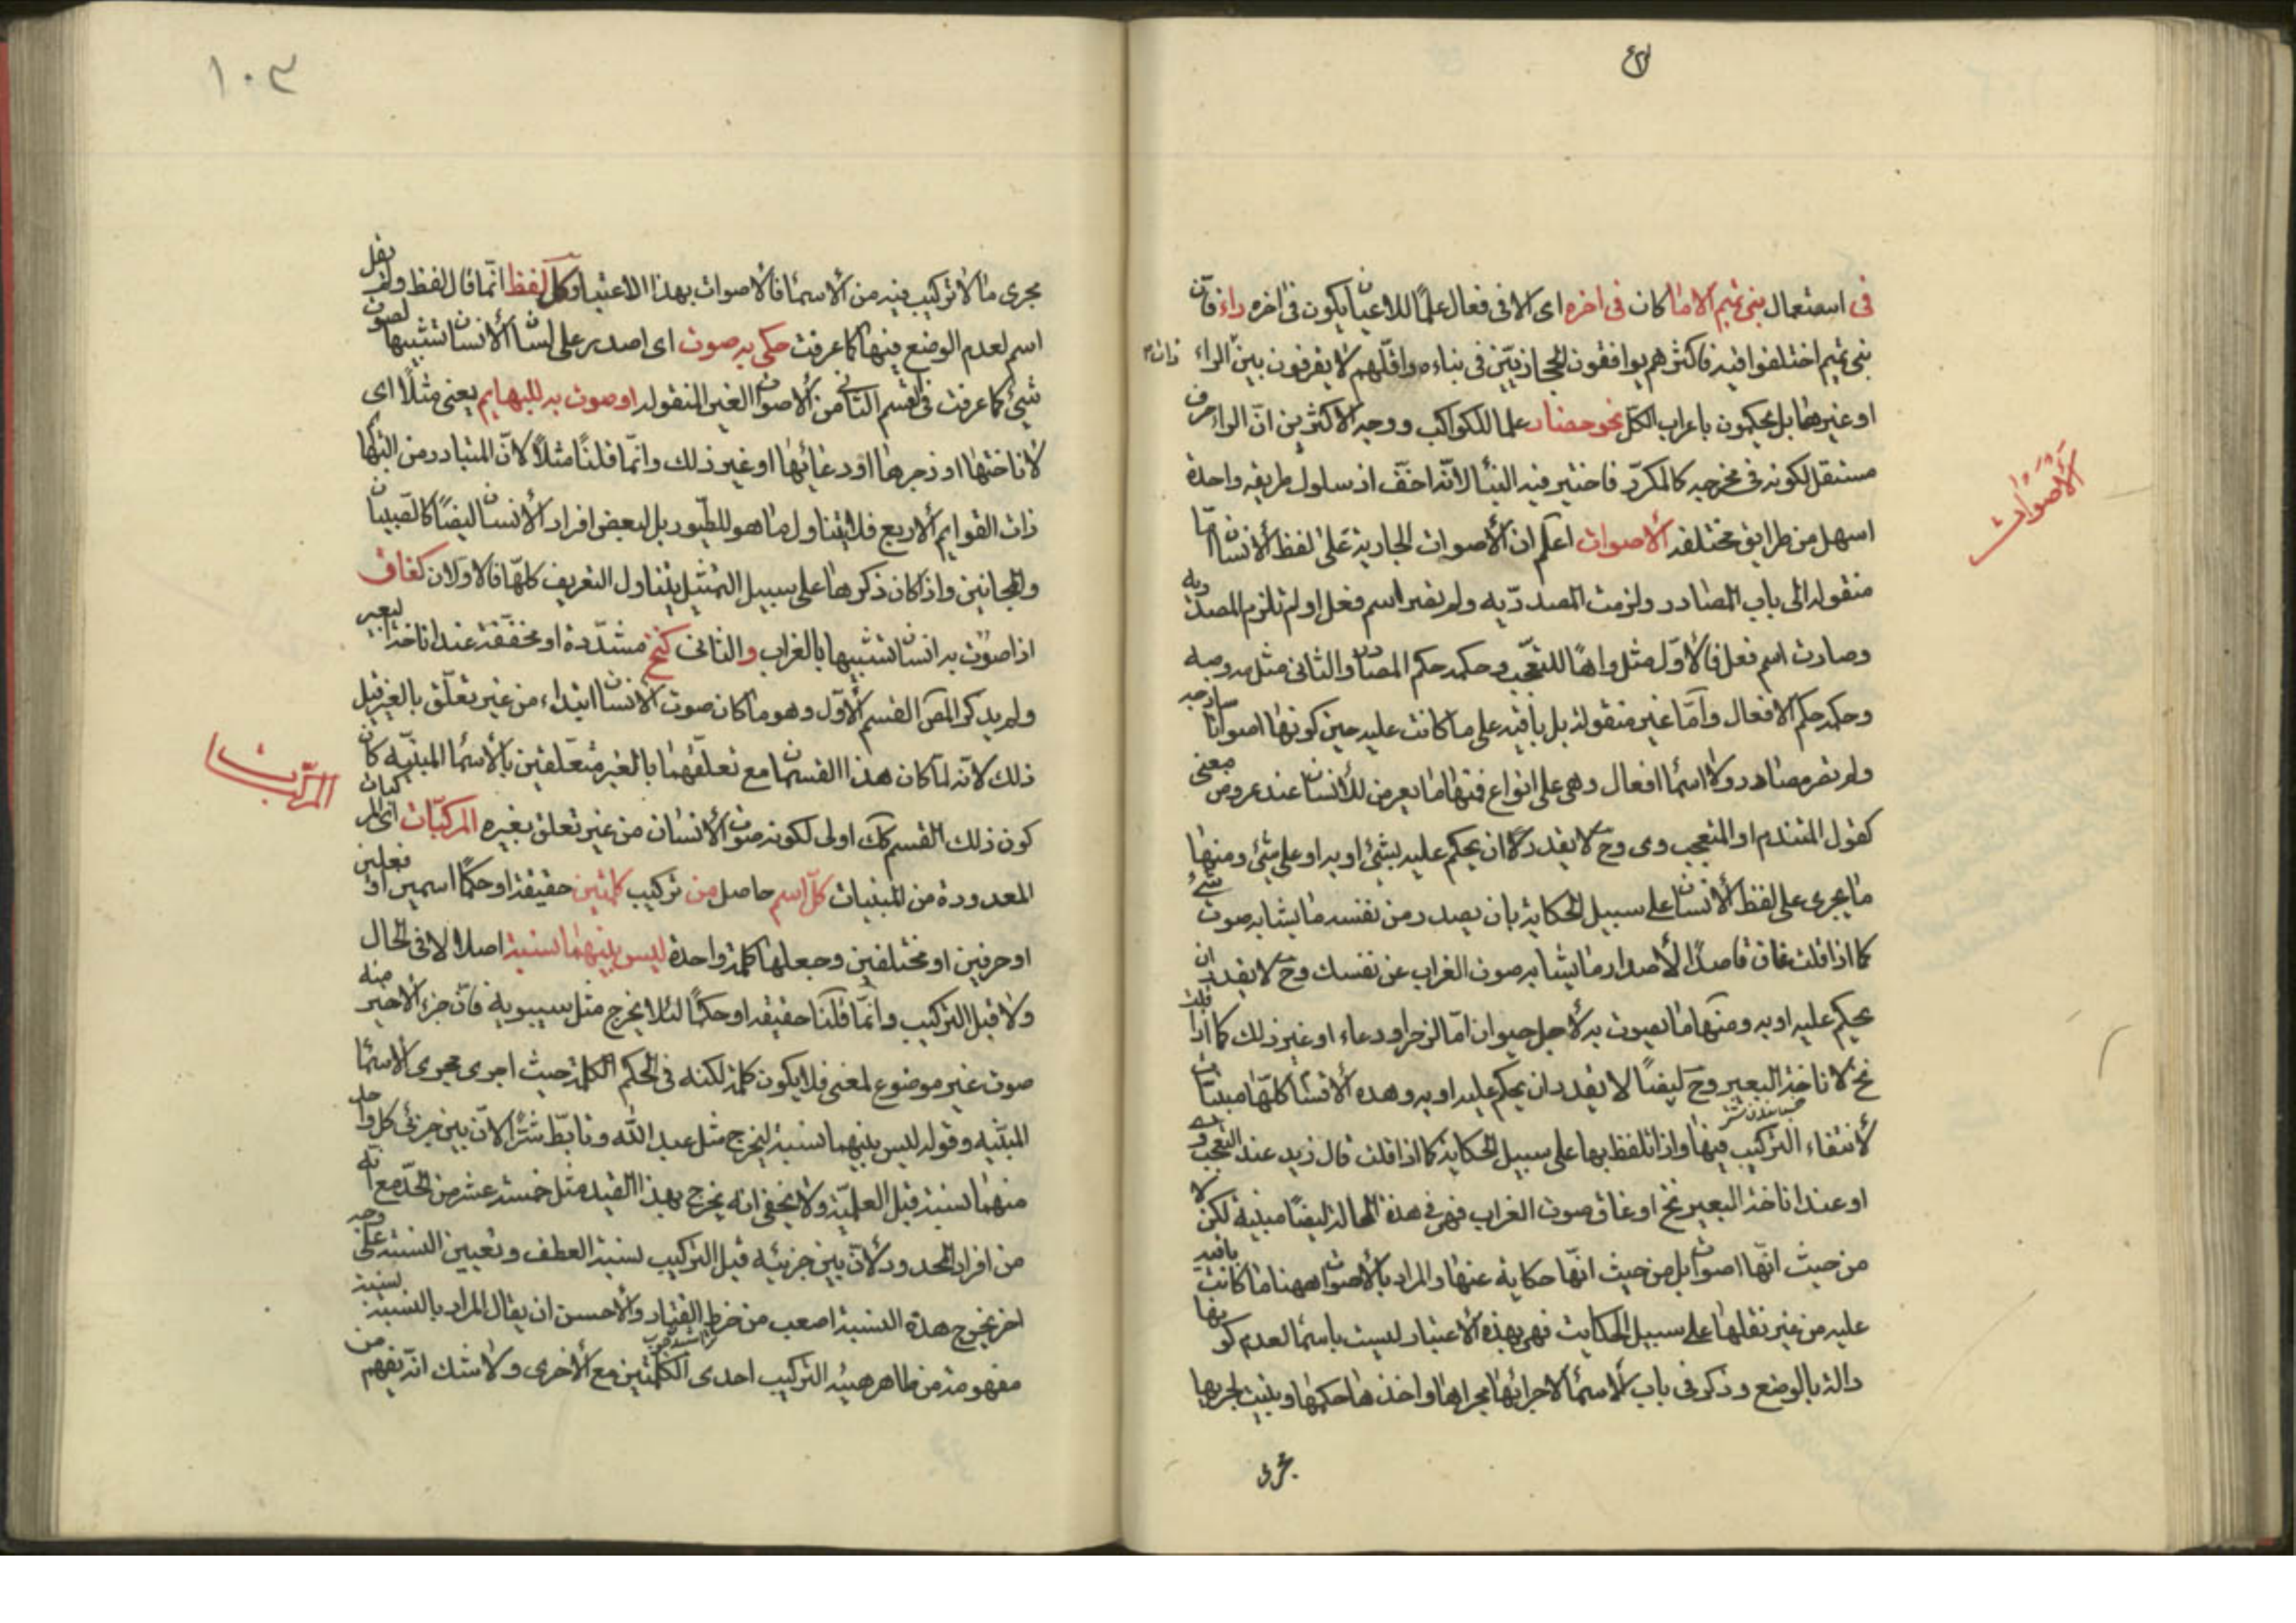 في استعمال بنى تميم الا ما كان فى اخره اى الا فى فعال علما للاعيان يكون فى اخره راء فان
بنى تميم اختلفوا فيه فاكثرهم يوافقون الحجازيّين فى بناءه واقلّهم لا يفرقون بين الراء ذات
او غيرها بل يحكمون باعراب الكلّ نحو حضار علما للكواكب ووجه الاكثرين انّ الراء حرف
مستقل لكونه فى مخرجه كالمكرّر فاختير فيه البناء لانّه اخفّ اذ سلوك طريقه واحدة
اسهل من طرايق مختلفه الاصوات اعلم ان الاصوات الجارية على لفظ الانسان امّا
منقوله الى باب المصادر ولزمت المصدريّه ولم تصر اسم فعل او لم تلزم المصدريه
وصارت اسم فعل فالاوّل مثل واهًا للتعجّب وحكمه حكم المصادر والثانى مثل مه وصه
وحكمه حكم الافعال وامّا غير منقولة بل باقيه على ما كانت عليه حين كونها اصواتا ساذجه
ولم تصر مصادر ولا اسماء افعال وهى على انواع فمنها ما يعرض للانسان عند عروض معنى
كقول المتندم او المتعجب وى وح لا يقدر ان يحكم عليه بشئ او به او على شئ ومنها
ما يجرى على لفظ الانسان على سبيل الحكاية بان يصدر من نفسه ما يشابه صوت شئ
كما اذا قلت غاق قاصدًا لاصدار ما يشابه صوت الغراب عن نفسك وح لا يقدر ان
يحكم عليه او به ومنها ما يصوت به لاجل حيوان امّا لزجر او دعاء او غير ذلك كما اذا قلت
نخ لاناخة البعير وح ايضًا لا يقدر ان يحكم عليه او به وهذه الاقسام كلّها مبنيات
لانتفاء التركيب فيها واذا تلفظ بها على سبيل الحكاية كما اذا قلت قال زيد عند التعجب وى
او عند اناخة البعير نخ او غاق صوت الغراب فهى فى هذه الحالة ايضًا مبنية لكن لا
من حيث انّها اصوات بل من حيث انّها حكاية عنها والمراد بالاصوات ههنا ما كانت باقيه
عليه من غير نقلها على سبيل الحكايت فهى بهذه الاعتبار ليست باسماء لعدم كونها
دالة بالوضع وذكر فى باب الاسماء لاجرائها مجراها واخذها حكمها وبنيت لجريها
مجرى
الأصوات
١٠٣
مجرى ما لا تركيب فيه من الاسماء فالاصوات بهذا الاعتبار كلّ لفظ انّما قال لفظ ولم يقل
اسم لعدم الوضع فيها كما عرفت حكى به صوت اى اصدر على لسان الانسان تشبيها لصوت
شئ كما عرفت فى القسم الثانى من الاصوات الغير المنقوله او صوت به للبهايم يعنى مثلًا اى
لاناختها او زجرها او دعائها او غير ذلك وانّما قلنا مثلًا لانّ المتبادر من البهايم
ذات القوايم الاربع فلا يتناول ما هو للطيور بل لبعض افراد الانسان ايضًا كالصبيان
والمجانين واذا كان ذكرها على سبيل التمثيل يتناول التعريف كلّها فالاولان كغاق
اذا صوّت به انسان تشبيها بالغراب والثانى كنخ مشدّدة او مخفّفة عند اناخة البعير
ولم يذكر المص القسم الاوّل وهو ما كان صوت الانسان ابتداء من غير تعلّق بالغير قيل
ذلك لانّه لمّا كان هذا القسمان مع تعلّقهما بالغير متعلّقين بالاسماء المبنيّه كان
كون ذلك القسم كك اولى لكونه صوت الانسان من غير تعلق بغيره المركبّات اى المركبات
المعدودة من المبنيات كلّ اسم حاصل من تركيب كلمتين حقيقة او حكمًا اسمين او فعلين
او حرفين او مختلفين وجعلها كلمة واحدة ليس بينهما نسبة اصلا لا فى الحال
ولا قبل التركيب وانّما قلنا حقيقه او حكمًا لئلا يخرج مثل سيبويه فانّ جزء الاخير منه
صوت غير موضوع لمعنى فلا يكون كلمة لكنه فى الحكم الكلمة حيث اجرى مجرى الاسماء
المبنيّه وقوله ليس بينهما نسبة ليخرج مثل عبد الله وتابّط شرًّا لانّ بين جزئى كل واحد
منهما نسبة قبل العلميّة ولا يخفى انه يخرج بهذا القيد مثل خمسة عشر من الحدّ مع انّه
من افراد المحدود لانّ بين جزئيه قبل التركيب نسبة العطف وتعيين النسبة على وجه
اخر يخرج هذه النسبة اصعب من خرط القتاد والاحسن ان يقال المراد بالنسبة نسبة
مفهومة من ظاهر هيئه التركيب احدى الكلمتين مع الاخرى ولا شك انّه يفهم من
المركبات